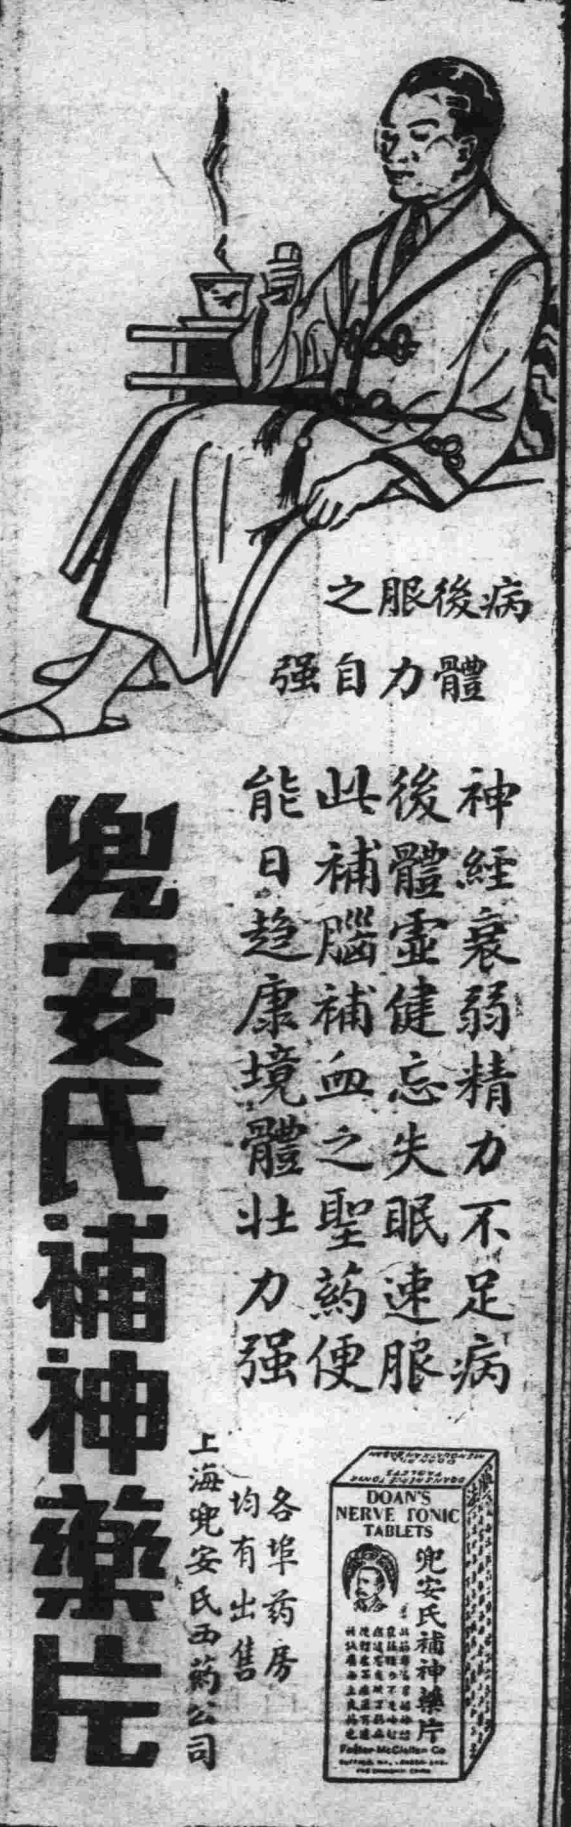 病後服之
體力自强
神經衰弱精力不足病
後體虛健忘失眠速服
此補腦補血之聖葯便
能日趋康境體壯力强
兜安氏補神藥片
各埠葯房
均有出售
上海兜安氏西葯公司
DOAN'S
NERVE TONIC
TABLETS
兜安氏補神藥片
Foster-McClellan Co